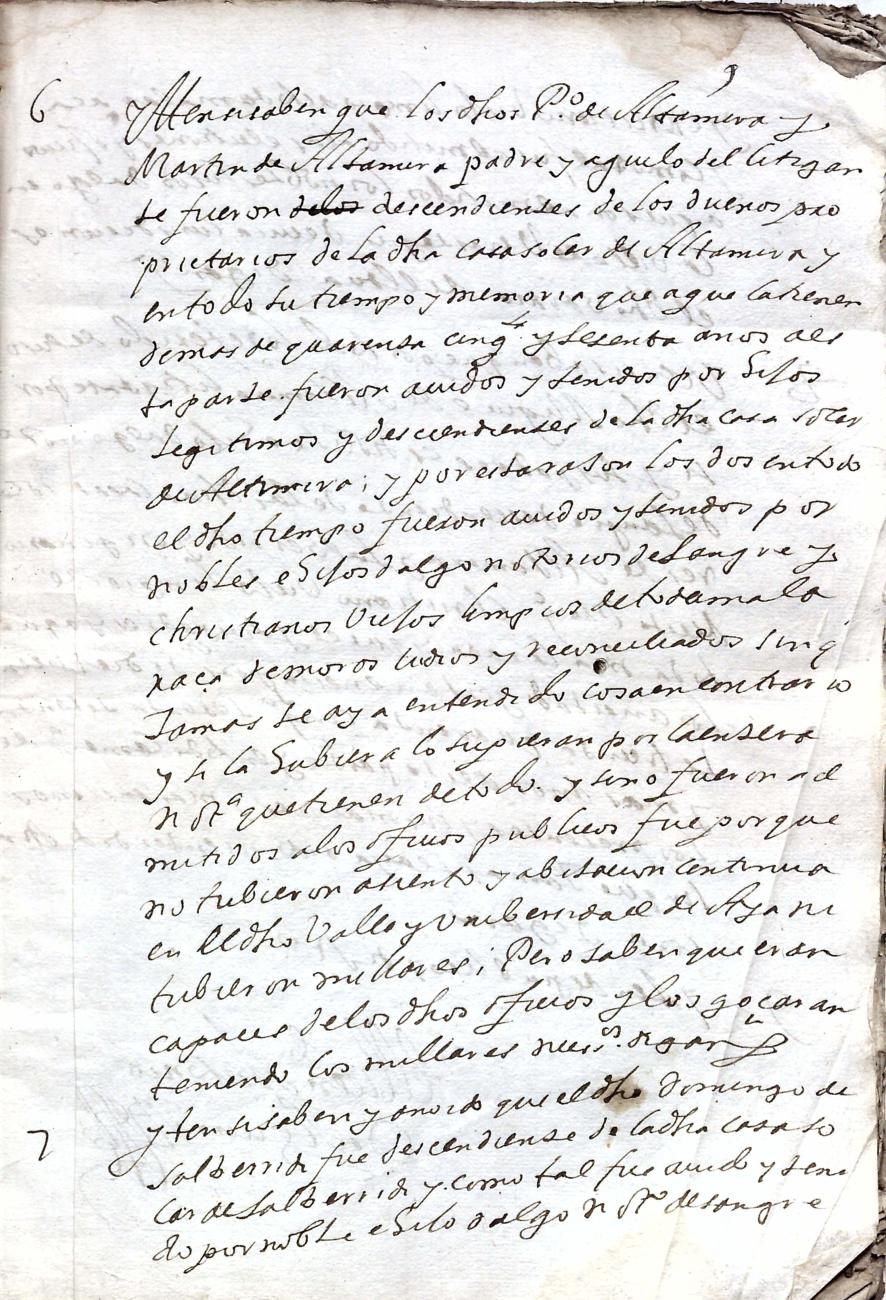 6 Yten si saben que los dhos P.º de Altamira y
Martin de Altamira padre y aguelo del litigan
te fueron delos descendientes de los duenos pro
prietarios de la dha casa solar de Altamira y
en todo su tiempo y memoria que a que la tienen
demas de quarenta cinqta y sesenta anos a es
ta parte fueron auidos y tenidos por Hijos
legitimos y descendientes de la dha casa solar
de Altamira; y por esta rason los dos en todo
el dho tiempo fueron auidos y tenidos por
nobles e Hijos dalgo notorios de sangre y
christianos Viejos limpios de toda mala
raça de moros Iudios y reconciliados sin q
Jamas se aya entendido cosa en contrario
y si la Hubiera lo supieran por la entera
notª que tienen de todo. y si no fueron ad
mitidos a los oficios publicos fue porque
no tubieron asiento y abitacion continua
en el dho Valle y Vnibersidad de Aya ni
tubieron millares; Pero saben que eran
capaces de los dhos oficios y los goçaran
teniendo los millares necess.os digan
7 yten si saben y an oido que el dho Domingo de
Salberridi fue descendiente de la dha casa so
lar de Salberridi y como tal fue auido y teni
do por noble e Hijo dalgo notº de sangre